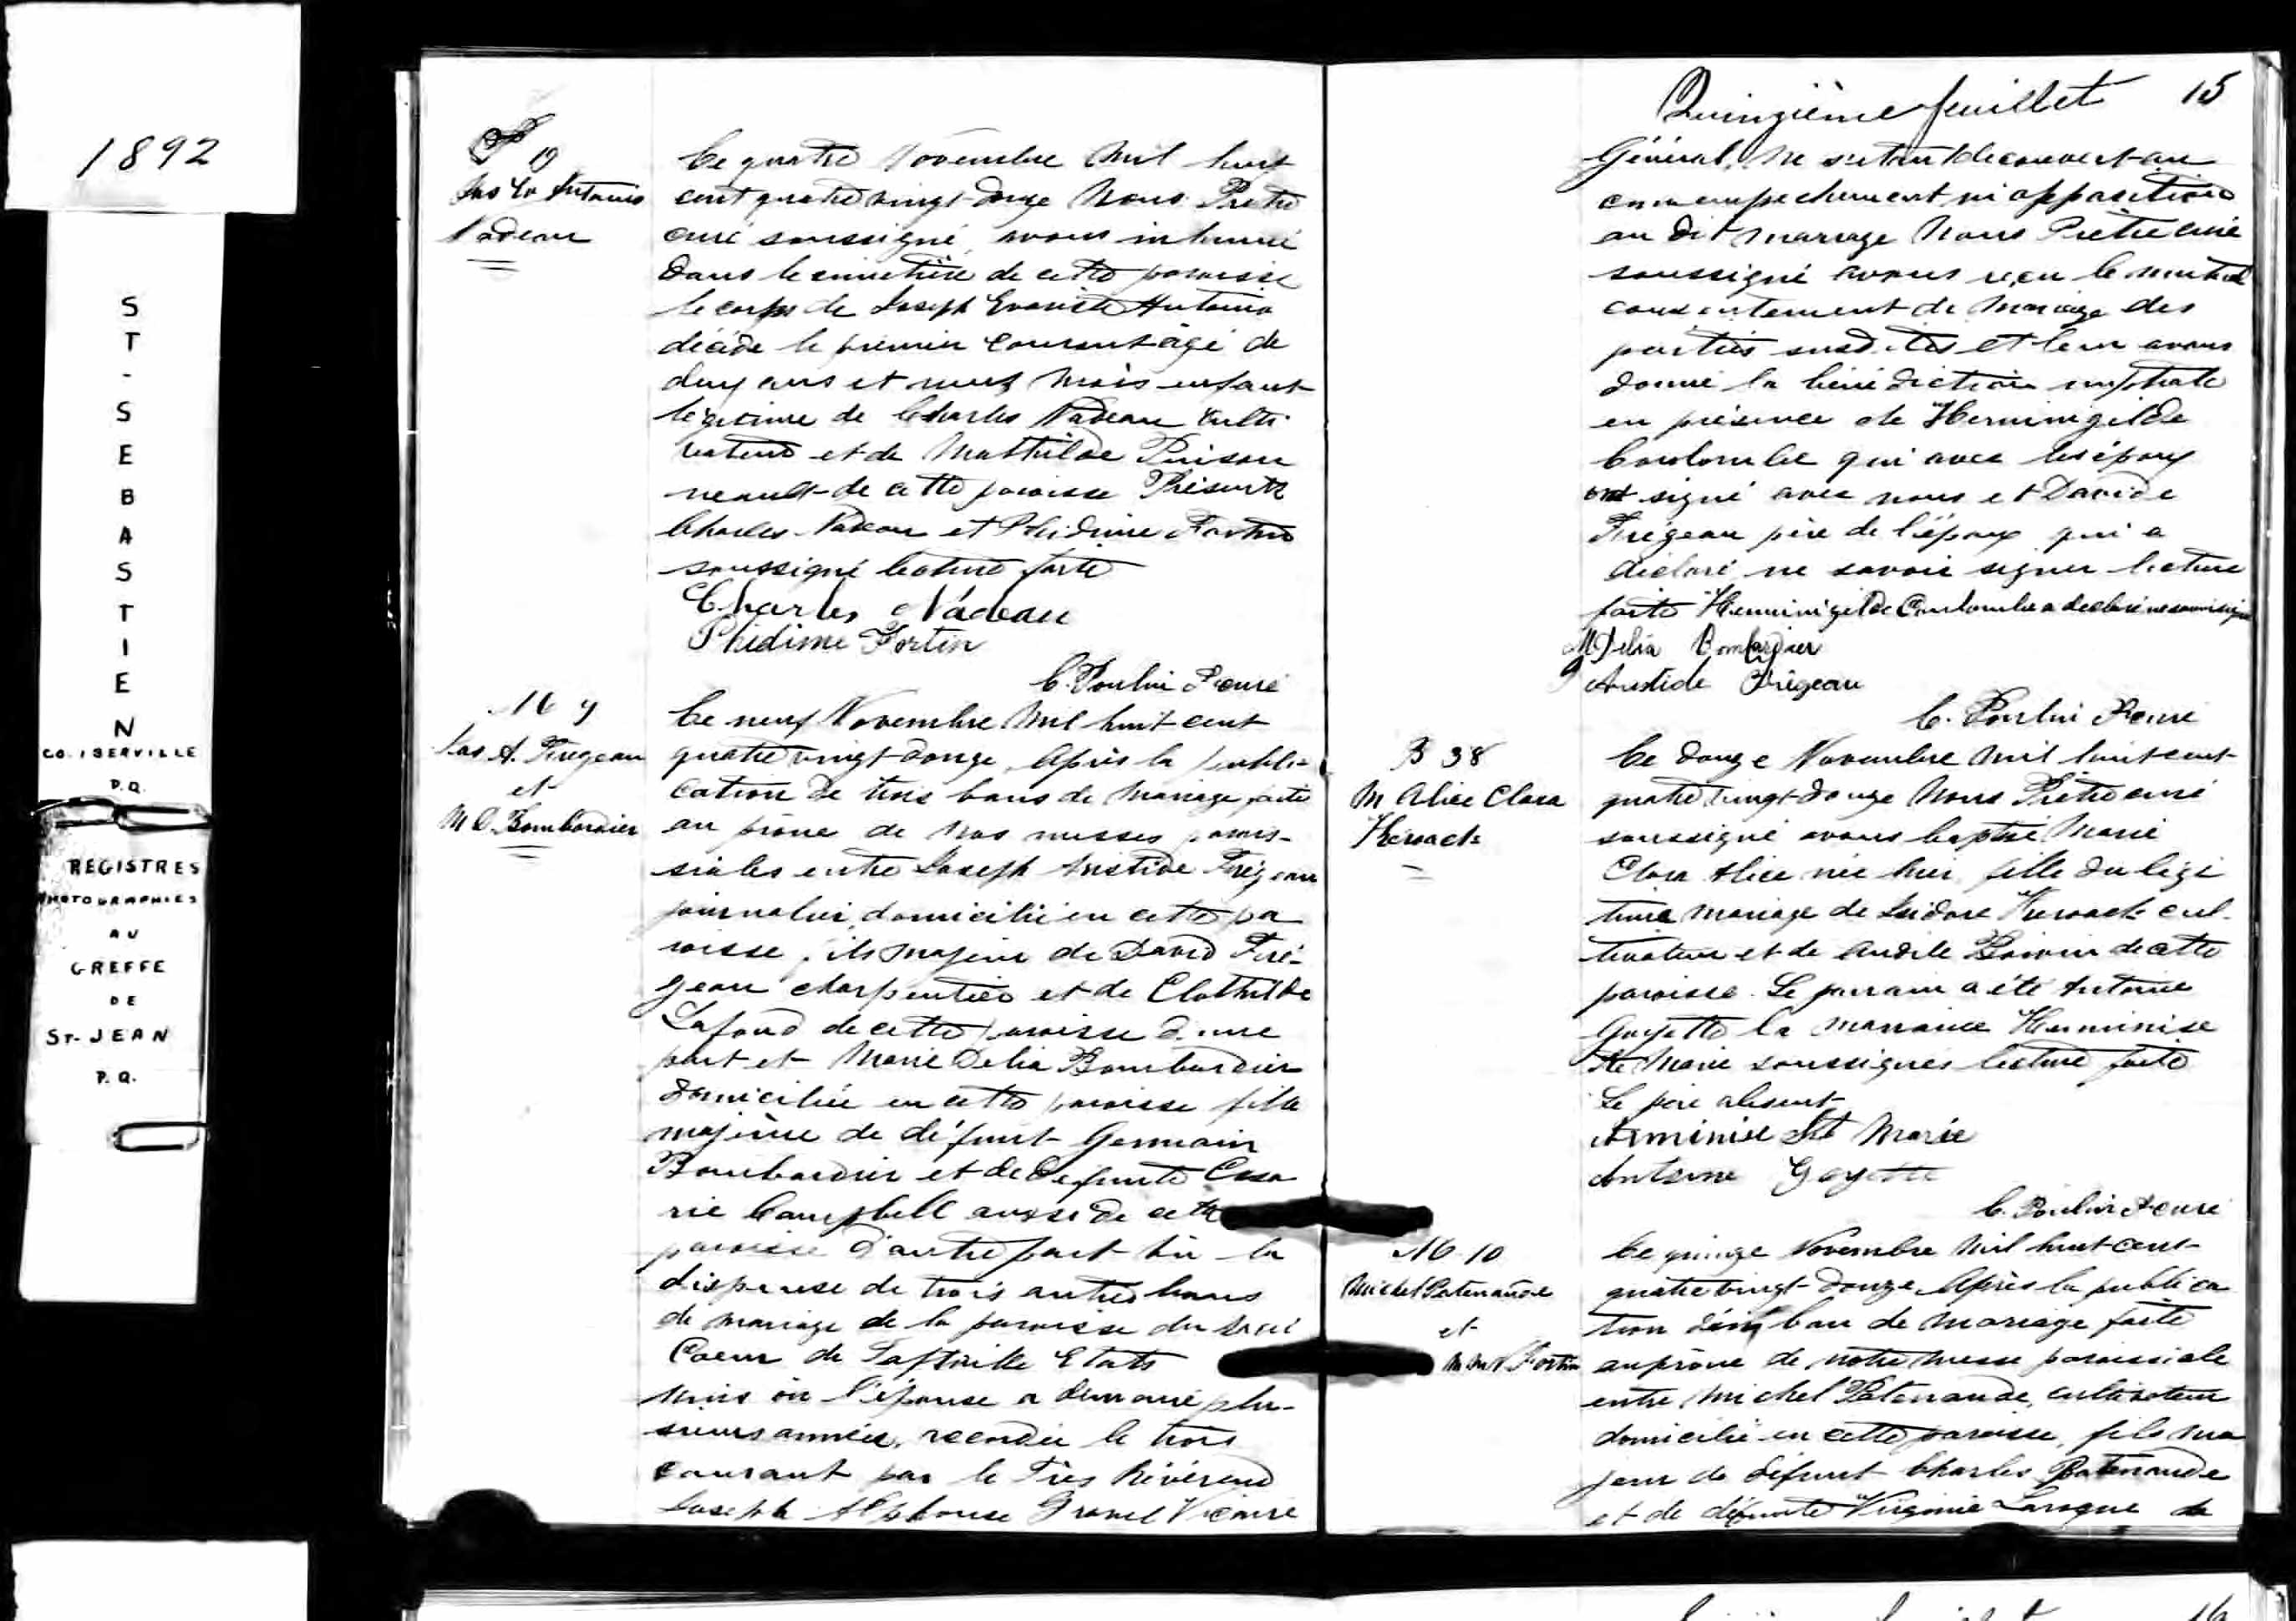 1892
ST-SEBASTIEN
CO. IBERVILLE
P.Q.
REGISTRES
PHOTOGRAPHIES
AU
GREFFE
DE
ST-JEAN
P.Q.
19
Jos Ev Antonio
Nadeau
Ce quatre Novembre Mil huit
cent quatre vingt-douze Nous Prêtre
curé soussigné, avons inhumé
dans le cimetière de cette paroisse
le corps de Joseph Evariste Antonio
décédé le premier courant âgé de
deux ans et neuf mois enfant
légitime de Charles Nadeau culti
vateur et de Mathilde Poisson
neault de cette paroisse Présents
Charles Nadeau et Phidime Fortin
soussigné lecture faite
Charles Nadeau
Phidime Fortin
C. Poulin Ptre curé
M 9
Jos A. Frégeau
et
M D. Bombardier
Ce neuf Novembre Mil huit cent
quatre vingt-douze, Après la publi-
cation de trois bans de Mariage faite
au prône de nos messes parois-
siales entre Joseph Aristide Frégeau
journalier, domicilié en cette pa
roisse, fils majeur de David Fré-
geau charpentier et de Clothilde
Lafond de cette paroisse d'une
part et Marie Delia Bombardier
domiciliée en cette paroisse fille
majeure de défunt Germain
Bombardier et de Defunte Cesa
rie Campbell aussi de cette
paroisse d'autre part Vu la
dispense de trois autres bans
de mariage de la paroisse du Sacré
Coeur de Taftville Etats
Unis où l'épouse a demeuré plu-
sieurs années, accordée le trois
courant par le Très Révérend
Joseph Alphonse Gravel Vicaire
Quinzième feuillet 15
Général, Ne s'étant découvert au
cun empechement ni opposition
au dit mariage Nous Prêtre curé
soussigné avons reçu le mutuel
consentement de Mariage des
parties susdites et leur avons
donné la bénédiction nuptiale
en présence de Herminigilde
Coulombe qui avec les époux
ont signé avec nous et David
Frégeau père de l'époux qui a
déclaré ne savoir signer lecture
faite Herminigilde Coulombe a déclaré ne savoir signer
M Delia Bombardier
J Aristide Frégeau
C. Poulin Ptre curé
B 38
M Alice Clara
Kéroack
Ce douze Novembre mil huit cent
quatre vingt-douze Nous Prêtre curé
soussigné avons baptisé Marie
Clara Alice née hier, fille du légi
time mariage de Isidore Kéroack cul-
tivateur et de Boivin de cette
paroisse. Le parrain a été Antoine
Goyette la marraine Herminise
Ste Marie soussignés lecture faite
Le père absent
Arminise Ste Marie
Antoine Goyette
C. Poulin Ptre curé
M 10
Michel Patenaude
et
M Fortin
Ce quinze Novembre Mil huit cent
quatre vingt-douze, Après la publica
tion d'un ban de Mariage faite
au prône de notre messe paroissiale
entre Michel Patenaude, cultivateur
domicilié en cette paroisse, fils ma
jeur de défunt Charles Patenaude
et de défunte Virginie Larocque de
16